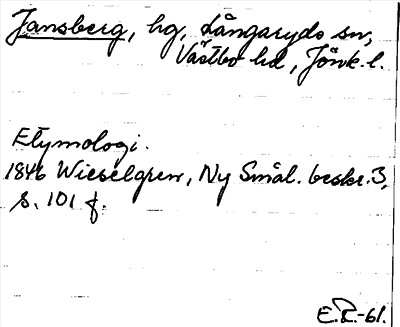 Jansberg, hg, Långaryds sn,
Västbo hd, Jönk. l.
Etymologi.
1846 Wieselgren, Ny Smål. beskr. 3,
s. 101 f.
E.R.-61.